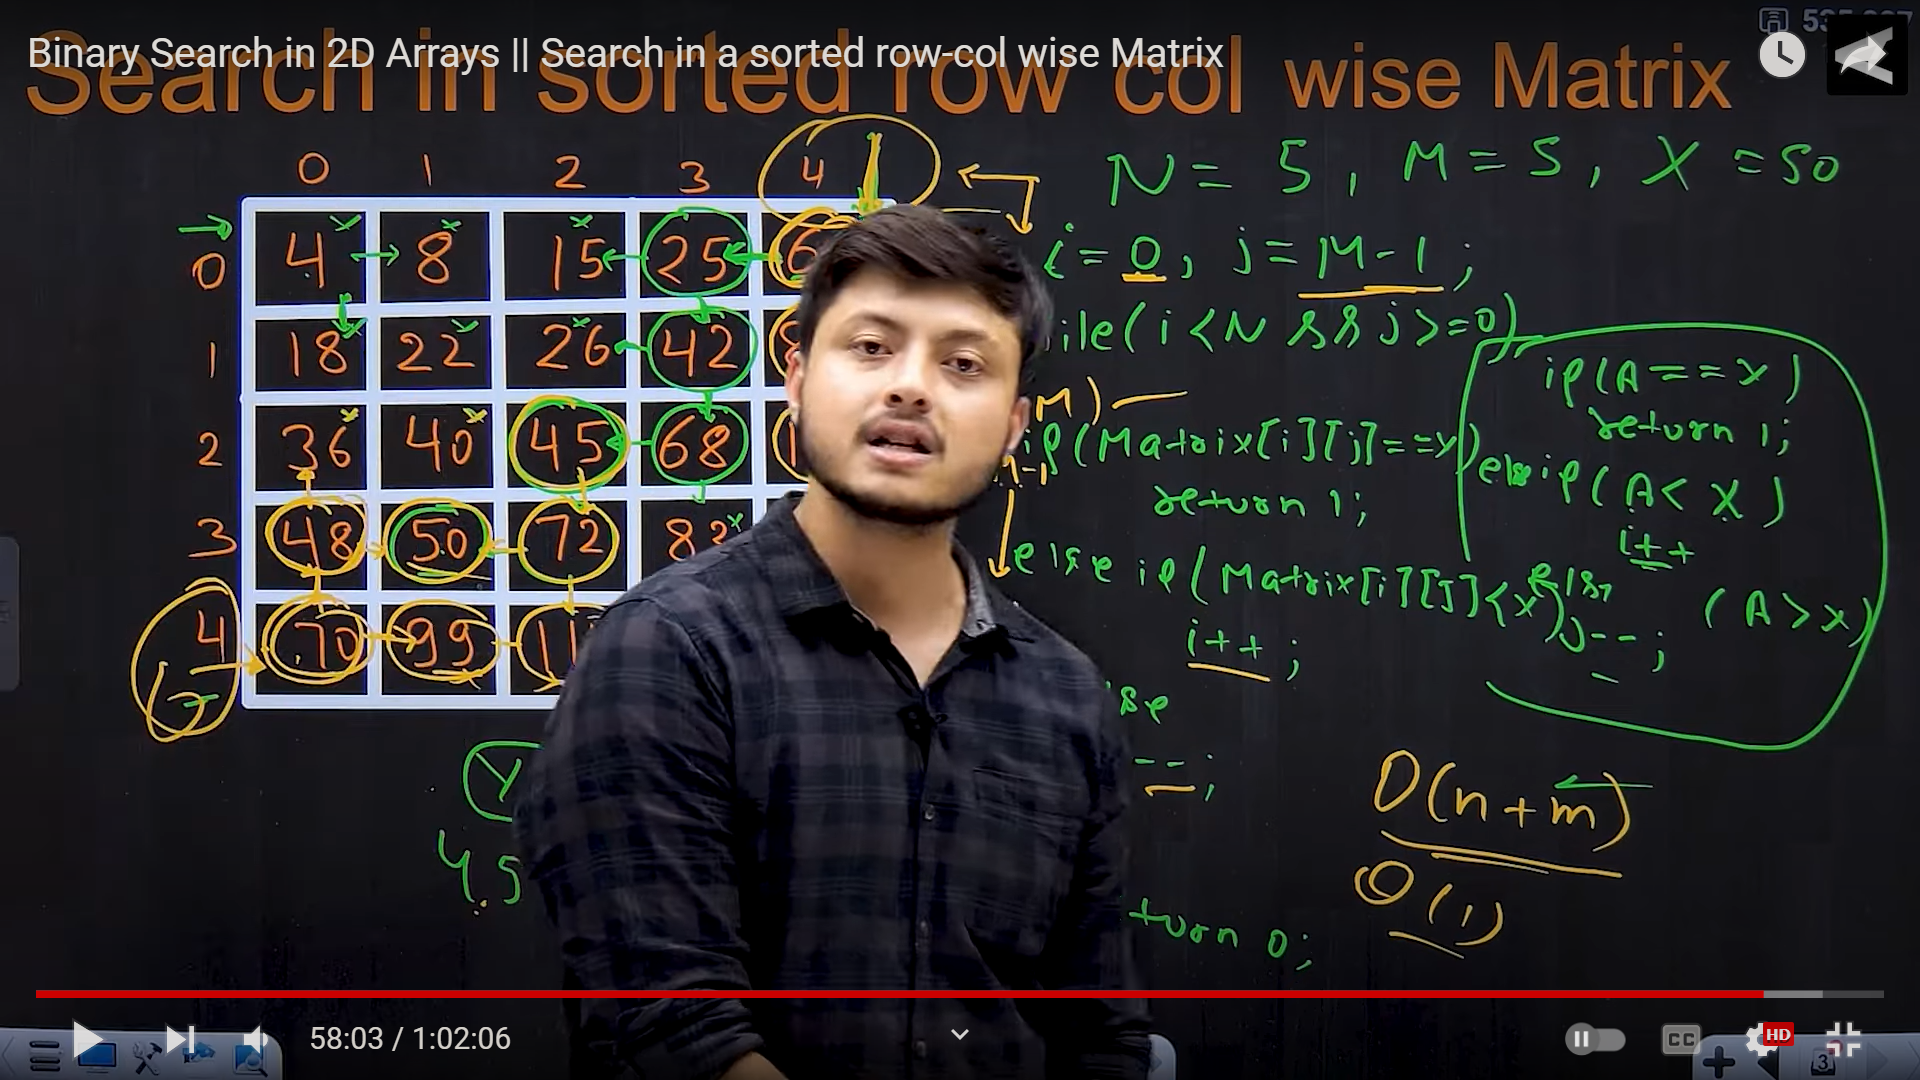 Binary Search in 2D Arrays || Search in a sorted row-col wise Matrix
Search in sorted row col wise Matrix
N = 5, M = 5, X = 50
0 1 2 3 4
0 4 8 15 25 6
1 18 22 26 42
2 36 40 45 68
3 48 50 72 83
4 70 99 11
i = 0, j = M-1;
ile(i<N && j>=0)
M)
if(Matrix[i][j]==X)
return 1;
else if(Matrix[i][j]<x)
i++;
se
--;
turn 0;
if(A==X)
return 1;
else if(A<X)
i++
else
j--; (A>X)
O(n+m)
O(1)
45
58:03 / 1:02:06
CC
HD
3